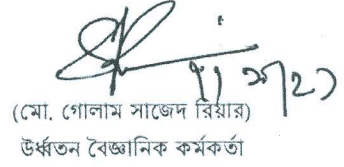 (মো. গোলাম সাজেদ রিয়ার)
উর্ধ্বতন বৈজ্ঞানিক কর্মকর্তা